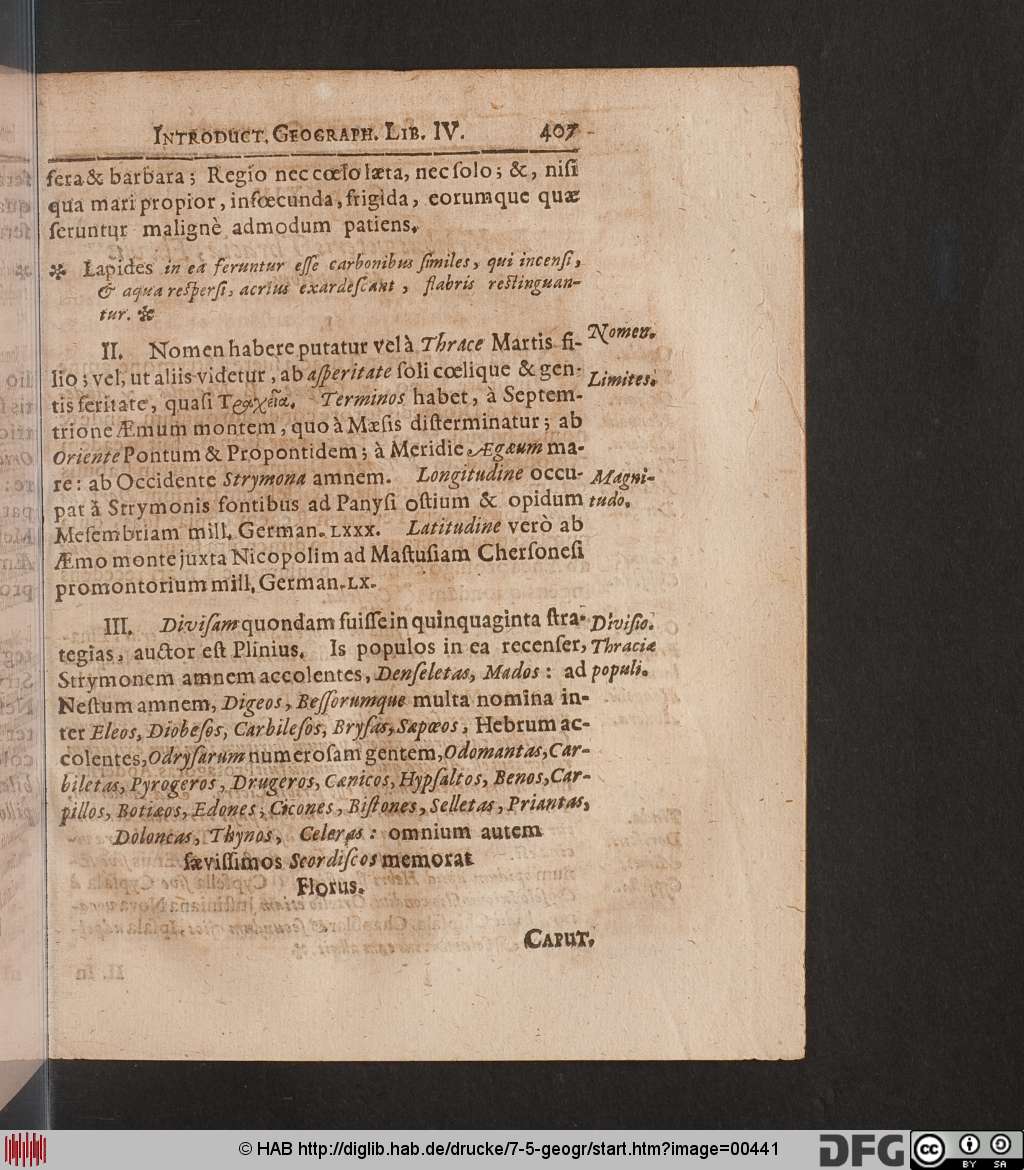 INTRODUCT. GEOGRAPH. LIB. IV. 407
fera & barbara; Regio nec cœlo læta, nec solo; &, nisi
qua mari propior, infœcunda, frigida, eorumque quæ
seruntur malignè admodum patiens.
✼ Lapides in ea feruntur esse carbonibus similes, qui incensi,
& aqua respersi, acrius exardescant, flabris restinguan-
tur. ✼
II. Nomen habere putatur vel à Thrace Martis fi-
lio; vel, ut aliis videtur, ab asperitate soli cœlique & gen-
tis feritate, quasi Τραχεῖα. Terminos habet, à Septem-
trione Æmum montem, quo à Mæsis disterminatur; ab
Oriente Pontum & Propontidem; à Meridie Ægæum ma-
re: ab Occidente Strymona amnem. Longitudine occu-
pat à Strymonis fontibus ad Panysi ostium & opidum
Mesembriam mill. German. LXXX. Latitudine verò ab
Æmo monte juxta Nicopolim ad Mastusiam Chersonesi
promontorium mill. German. LX.
Nomen.
Limites.
Magni-
tudo.
III. Divisam quondam fuisse in quinquaginta stra-
tegias, auctor est Plinius. Is populos in ea recenset,
Strymonem amnem accolentes, Denseletas, Mados: ad
Nestum amnem, Digeos, Bessorumque multa nomina in-
ter Eleos, Diobesos, Carbilesos, Brysas, Sapæos, Hebrum ac-
colentes, Odrysarum numerosam gentem, Odomantas, Car-
biletas, Pyrogeros, Drugeros, Cænicos, Hypsaltos, Benos, Car-
pillos, Botiæos, Edones, Cicones, Bistones, Selletas, Priantas,
Doloncas, Thynos, Celeras: omnium autem
sævissimos Scordiscos memorat
Florus.
Divisio.
Thraciæ
populi.
CAPUT.
© HAB http://diglib.hab.de/drucke/7-5-geogr/start.htm?image=00441
DFG
cc BY SA